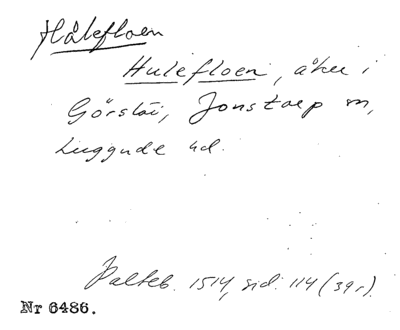 Hålefloen
Hulefloen, åker i
Görslöv, Jonstorp sn,
Luggude hd.
Palteb. 1514, sid. 114 (39 r).
Nr 6486.